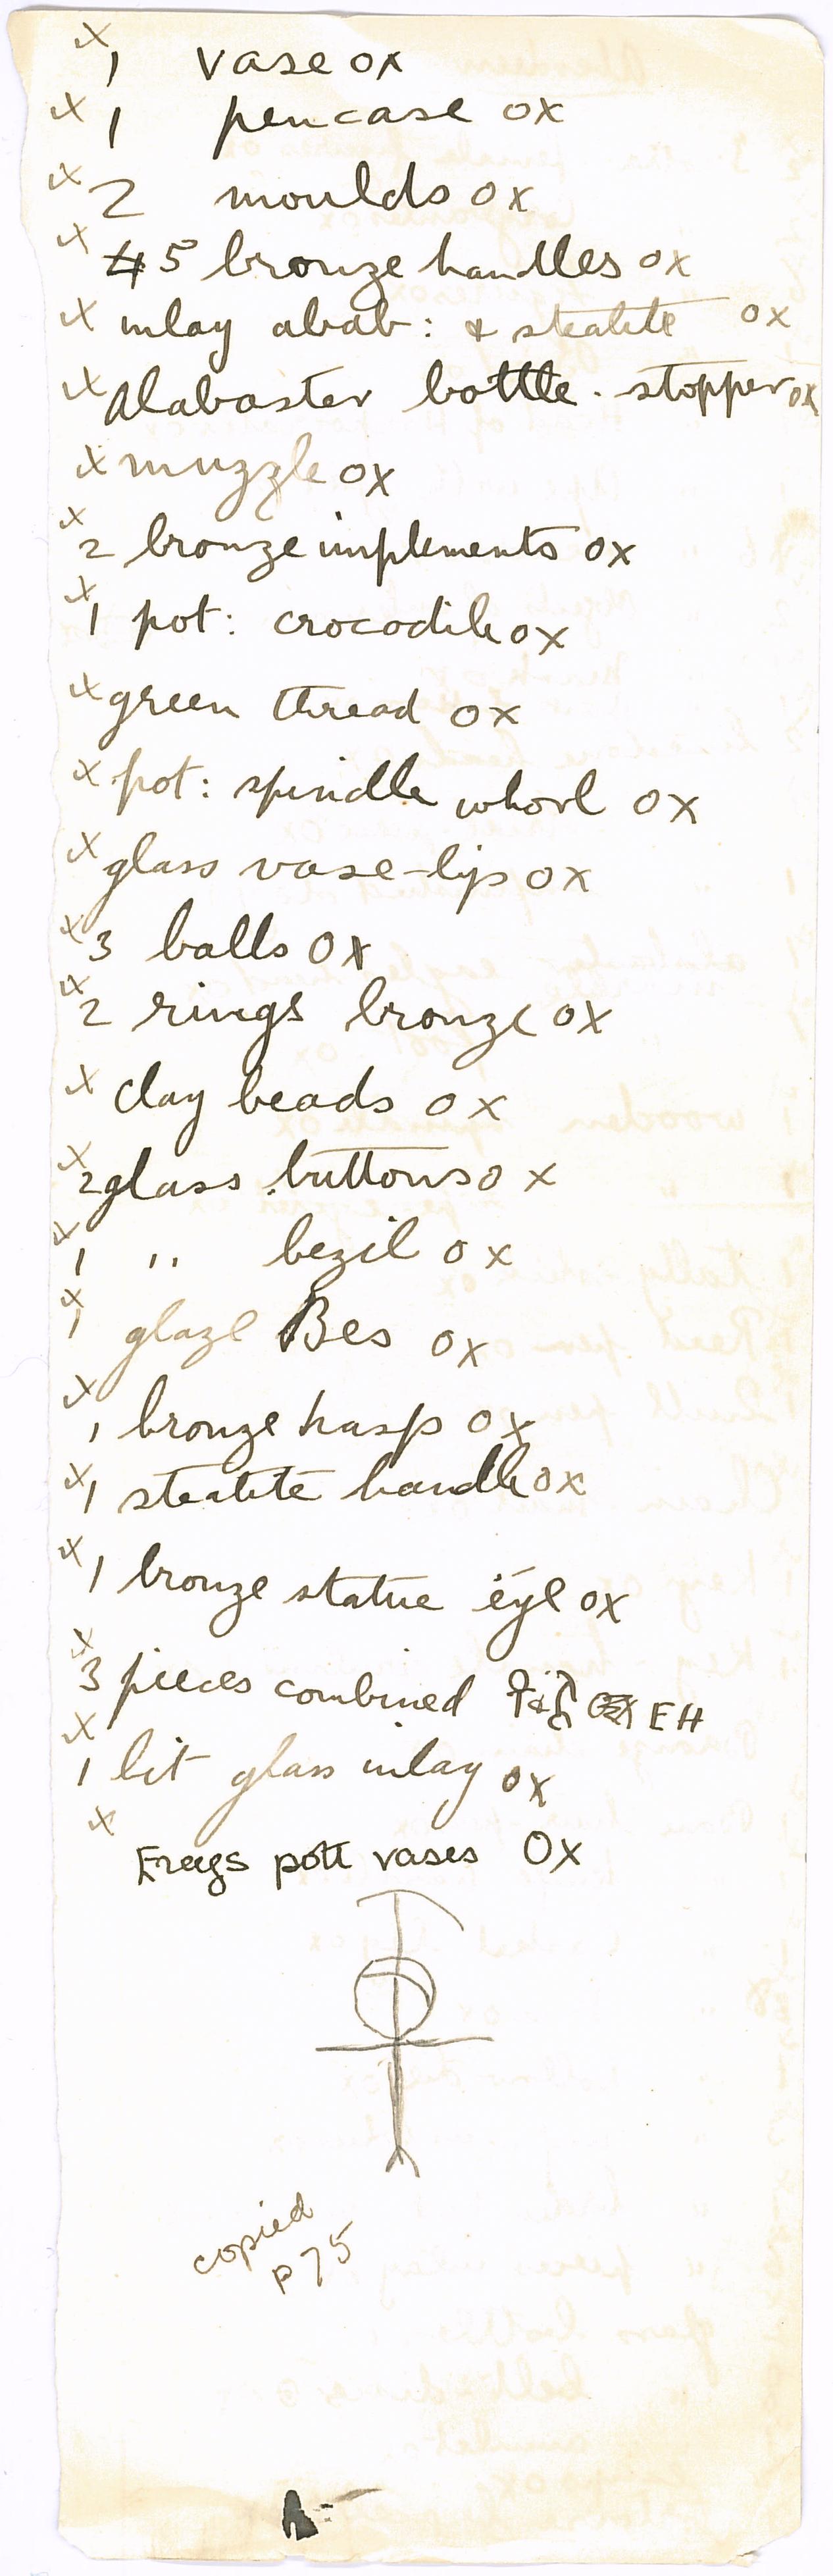 x 1 vase OX
x 1 pencase OX
x 2 moulds OX
x 5 bronze handles OX
x inlay alab: & steatite OX
x Alabaster bottle. stopper OX
x muzzle OX
x 2 bronze implements OX
x 1 pot: crocodile OX
x green thread OX
x pot: spindle whorl OX
x glass vase-lip OX
x 3 balls OX
x 2 rings bronze OX
x Clay beads OX
x 2 glass buttons OX
x 1 ,, bezil OX
x 1 glaze Bes OX
x 1 bronze hasp OX
x 1 steatite handle OX
x 1 bronze statue eye OX
x 3 pieces combined EH
x 1 bit glass inlay OX
x Frags pott vases OX
copied
p 75